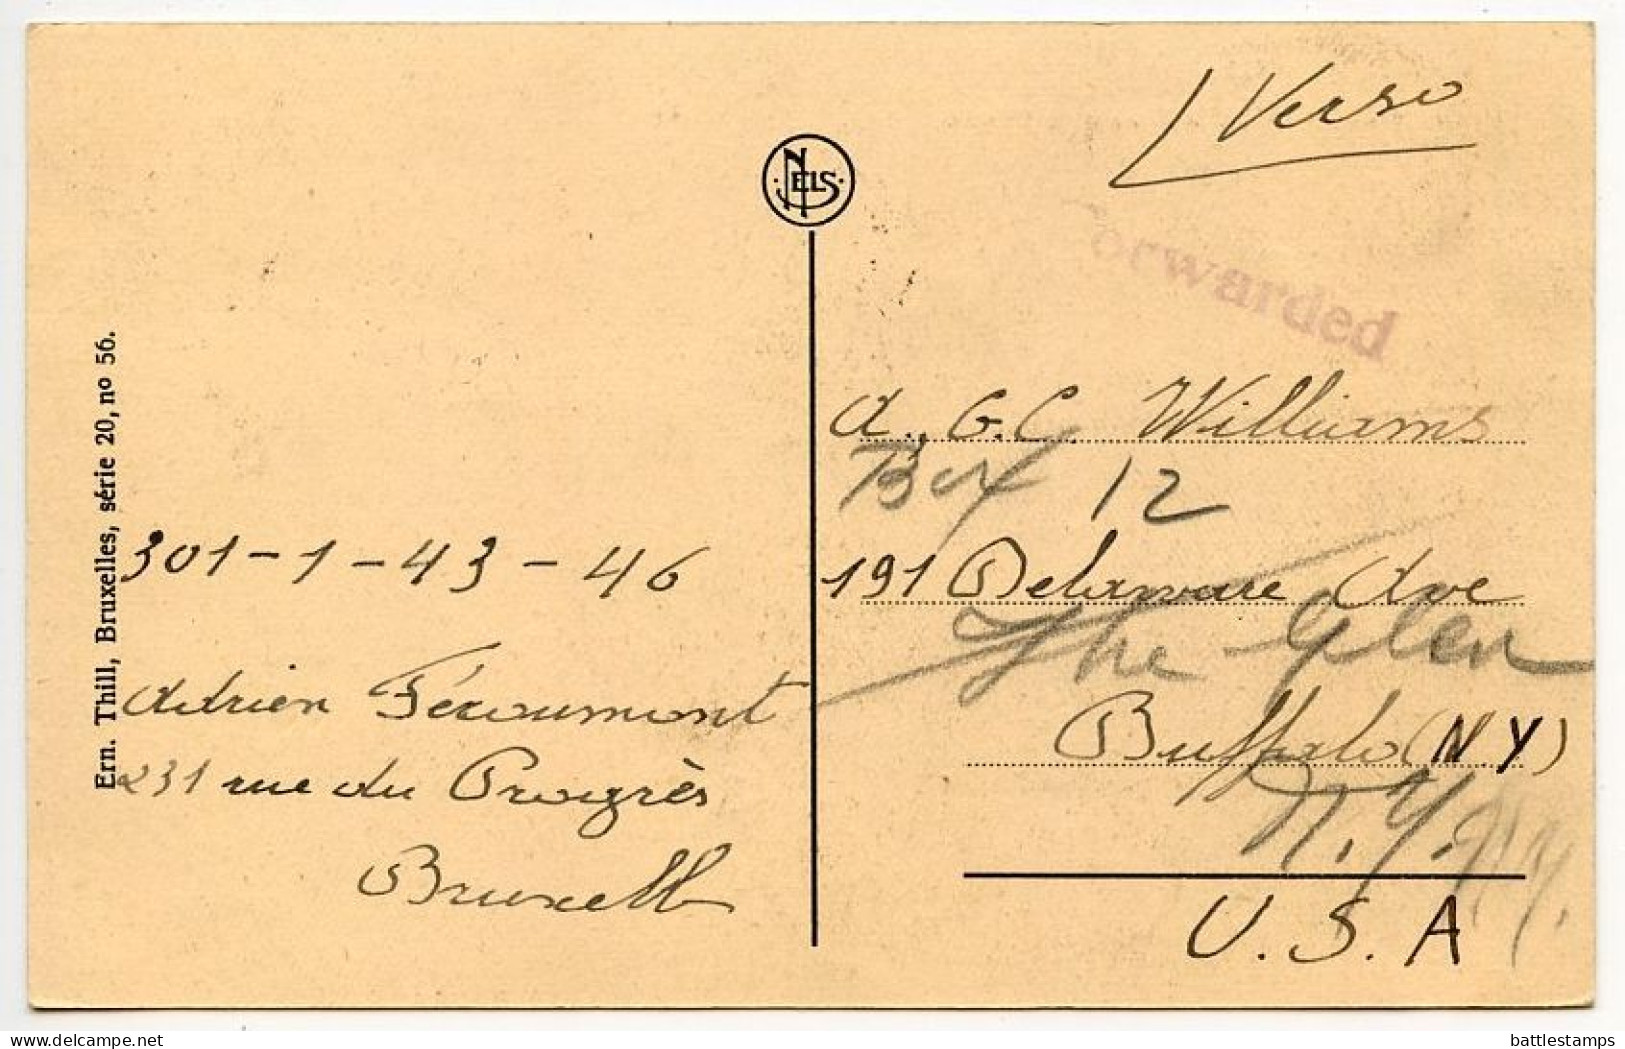 Verso
NELS
orwarded
Ern. Thill, Bruxelles, série 20, nº 56.
301-1-43-46
Adrien Féroumont
231 rue du Progrès
Bruxelles
A. G.C. Williams
Box 12
191 Delaware Ave
The Glen
Buffalo (N.Y)
N.Y.
N.Y.
U.S.A
delcampe.net
battlestamps